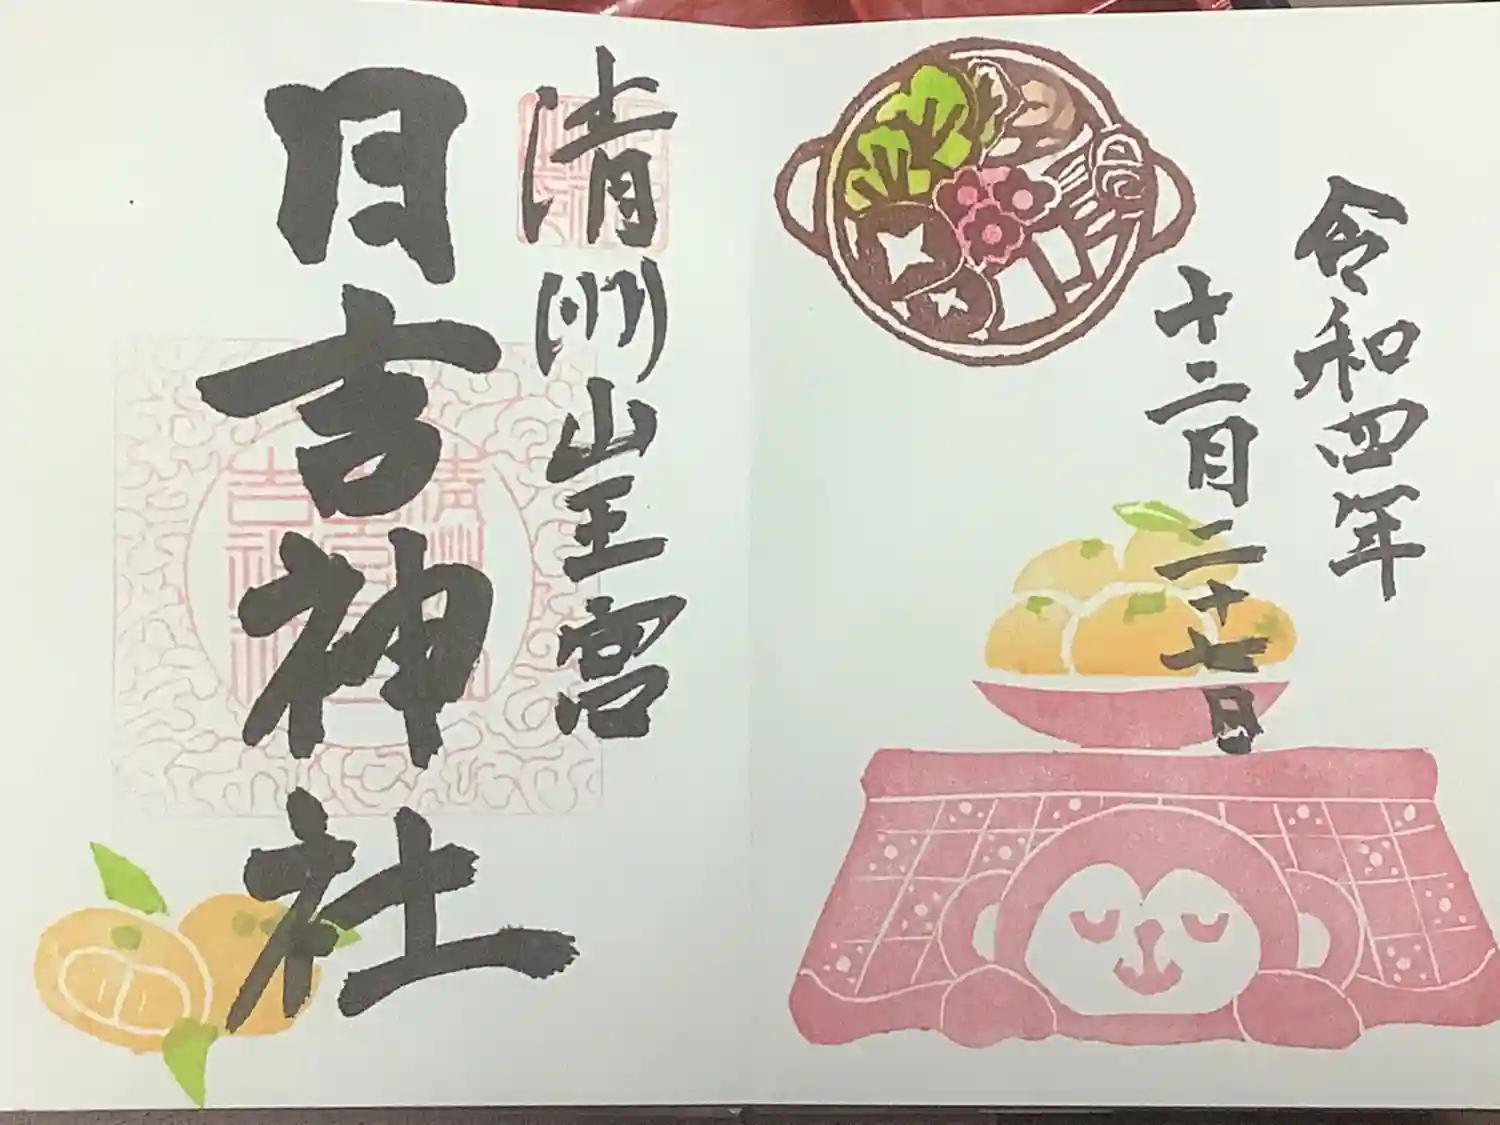 令和四年
十二月二十七日
清州山王宮
日吉神社